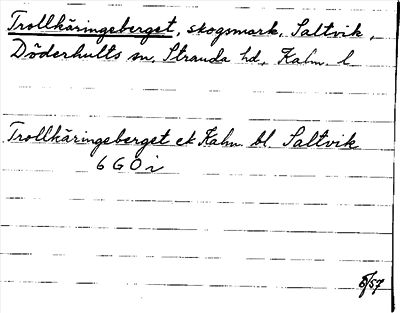 Trollkäringeberget, skogsmark, Saltvik,
Döderhults sn, Stranda hd, Kalm. l
Trollkäringeberget ek Kalm. bl. Saltvik
6 G O i
8/57